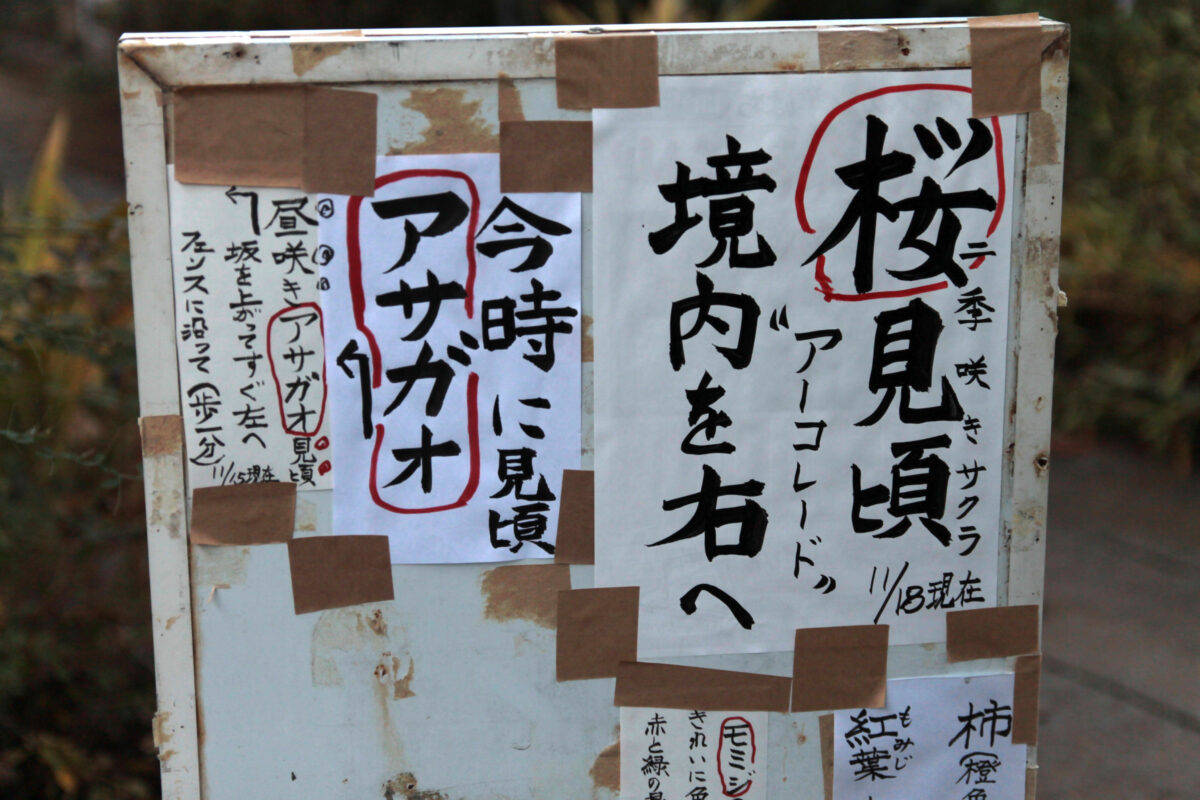 二季咲きサクラ
桜見頃
11/18現在
“アーコレード”
境内を右へ
今時に見頃
アサガオ
昼咲きアサガオ見頃
坂を上がってすぐ左へ
フェンスに沿って(歩一分)
11/15現在
柿(橙色
もみじ
紅葉
モミジ
きれいに色
赤と緑の